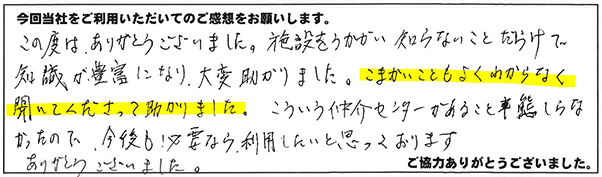 今回当社をご利用いただいてのご感想をお願いします。
この度は、ありがとうございました。施設をうかがい知らないことだらけで
知識が豊富になり、大変助かりました。こまかいこともよくわからなく
聞いてくださって助かりました。こういう仲介センターがあること事態しらな
かったので、今後も必要なら、利用したいと思っております
ありがとうございました。
ご協力ありがとうございました。